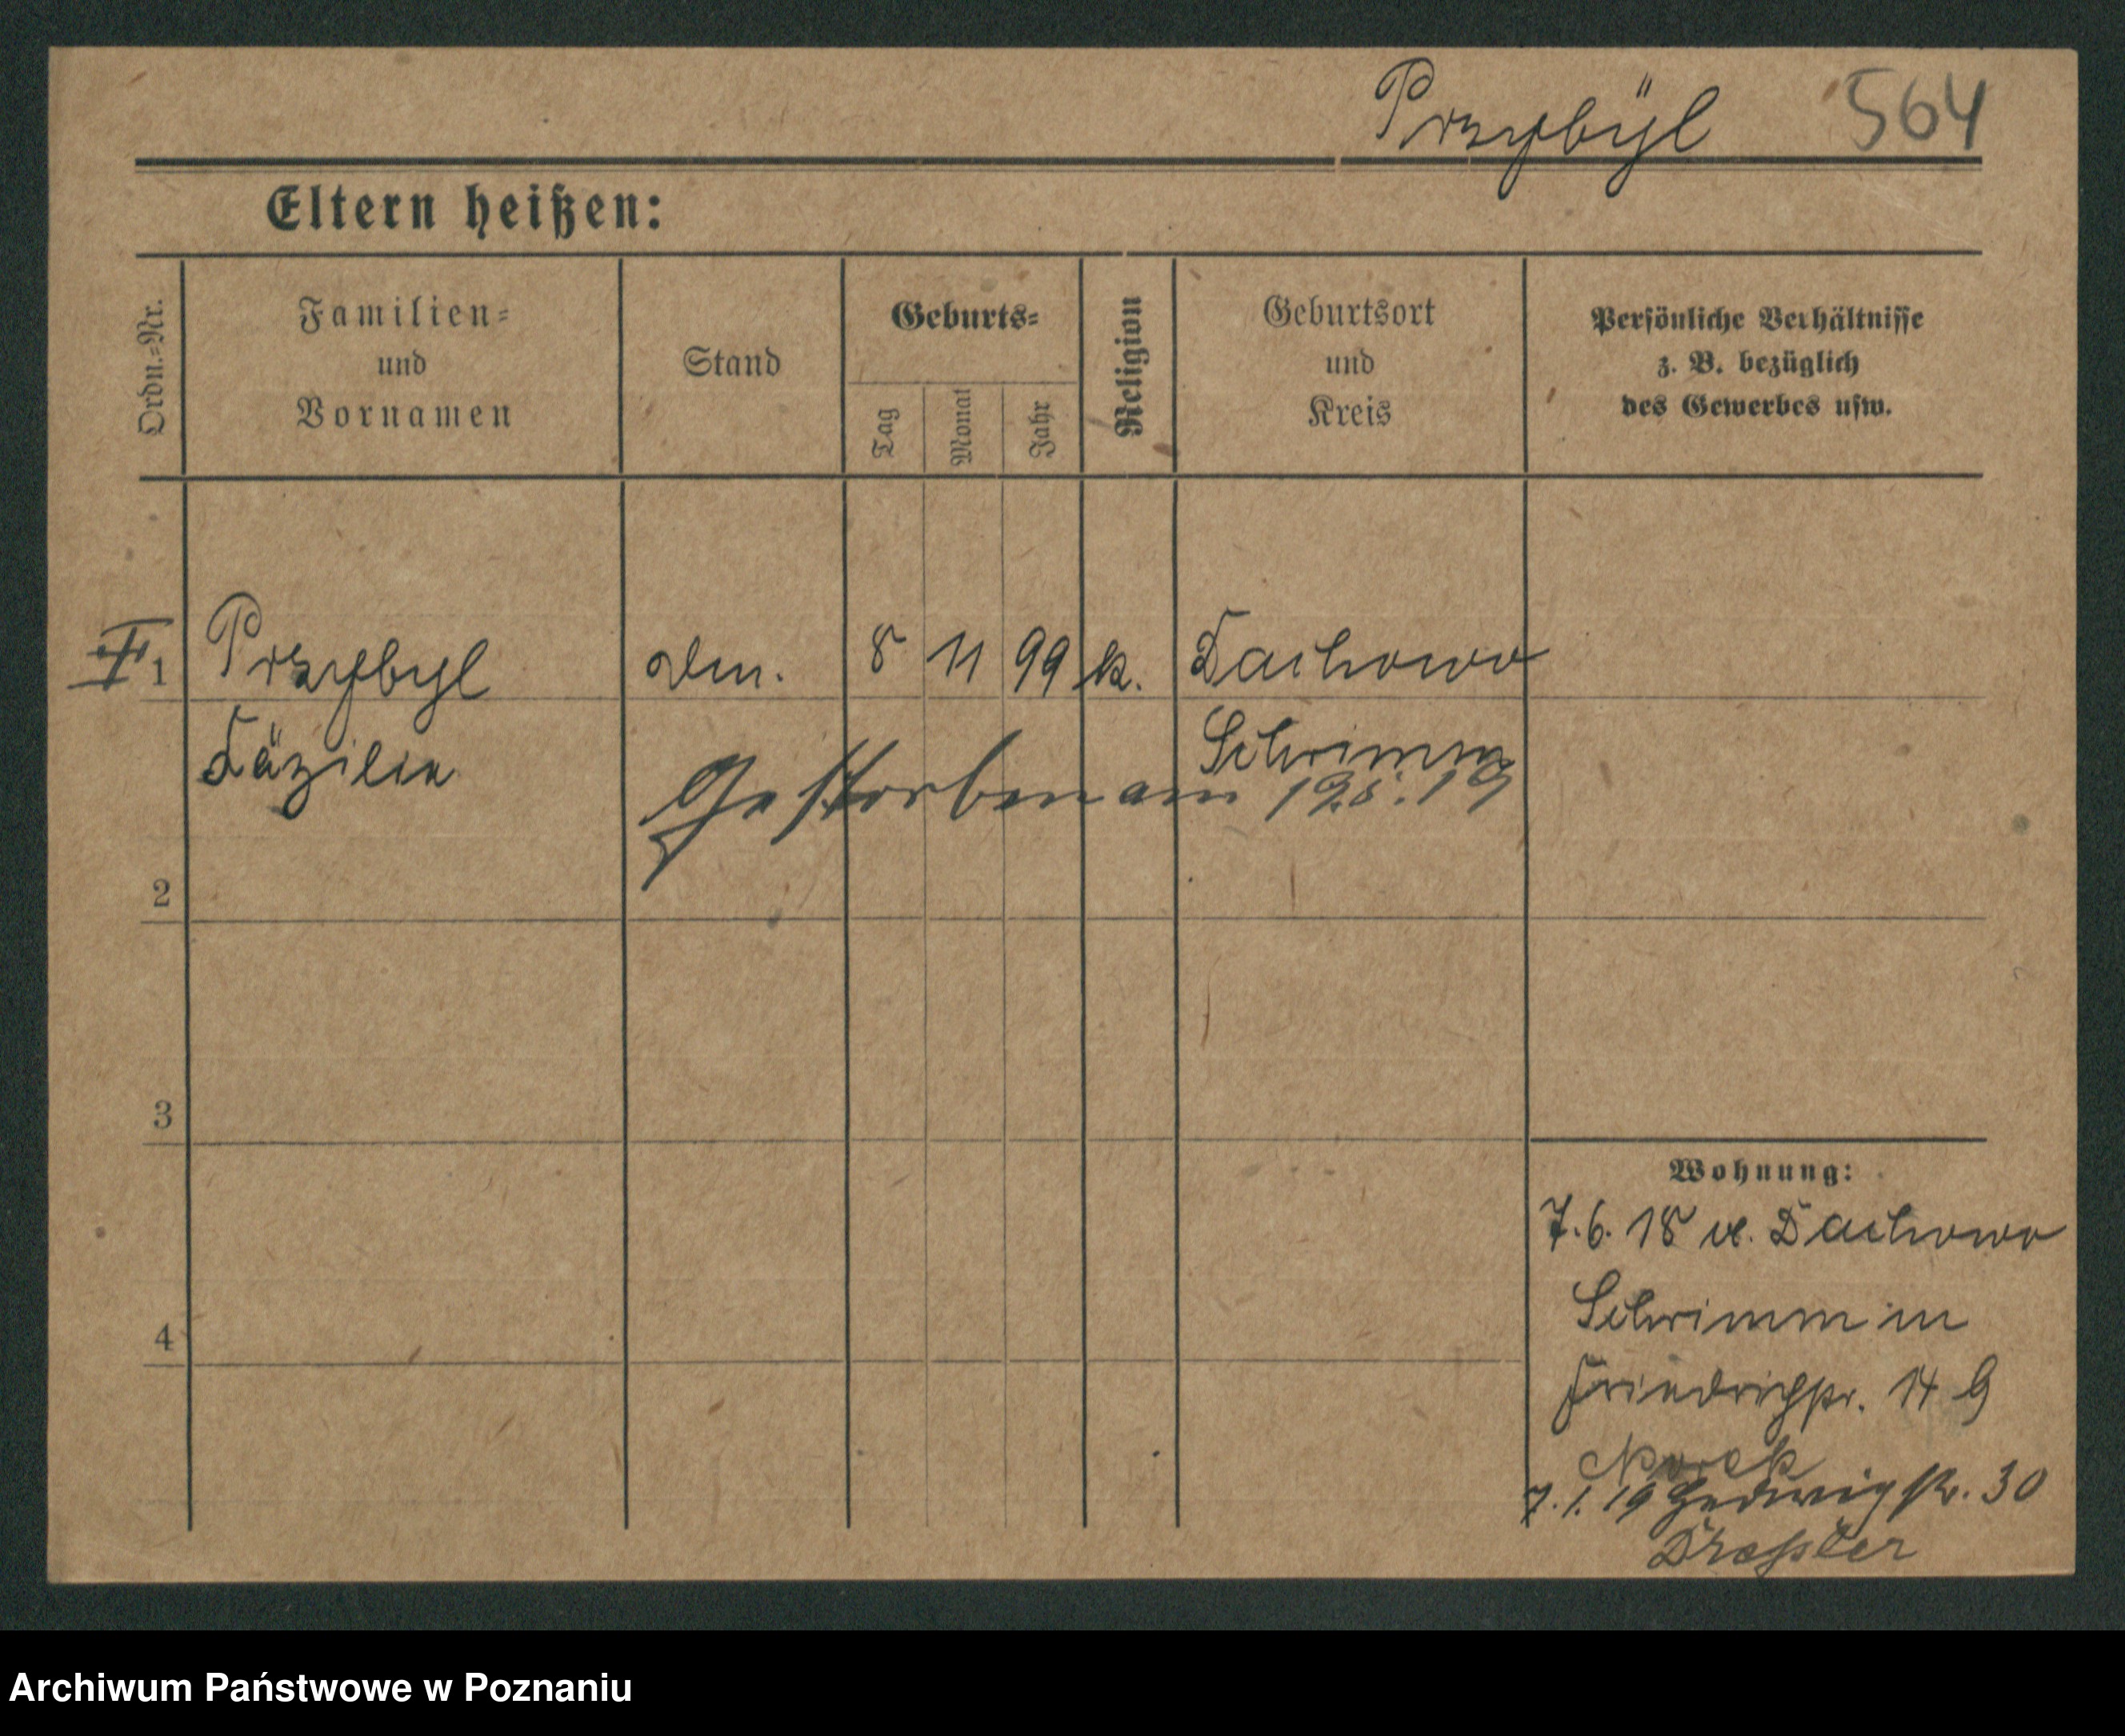 Przybÿl 564
Eltern heißen:
Ordn.=Nr.
Familien=
und
Vornamen
Stand
Geburts=
Tag
Monat
Jahr
Religion
Geburtsort
und
Kreis
Persönliche Verhältnisse
z. B. bezüglich
des Gewerbes usw.
1 Przybyl 8 11 99 k. Dachowo
Zäzilie Schrimm
Gestorben am 19.5.19
2
3
4
Wohnung:
7. 6. 18 v. Dachowo
Schrimm in
Friedrichstr. 14 G
7. 1. 19 Hedwigstr. 30
Archiwum Państwowe w Poznaniu